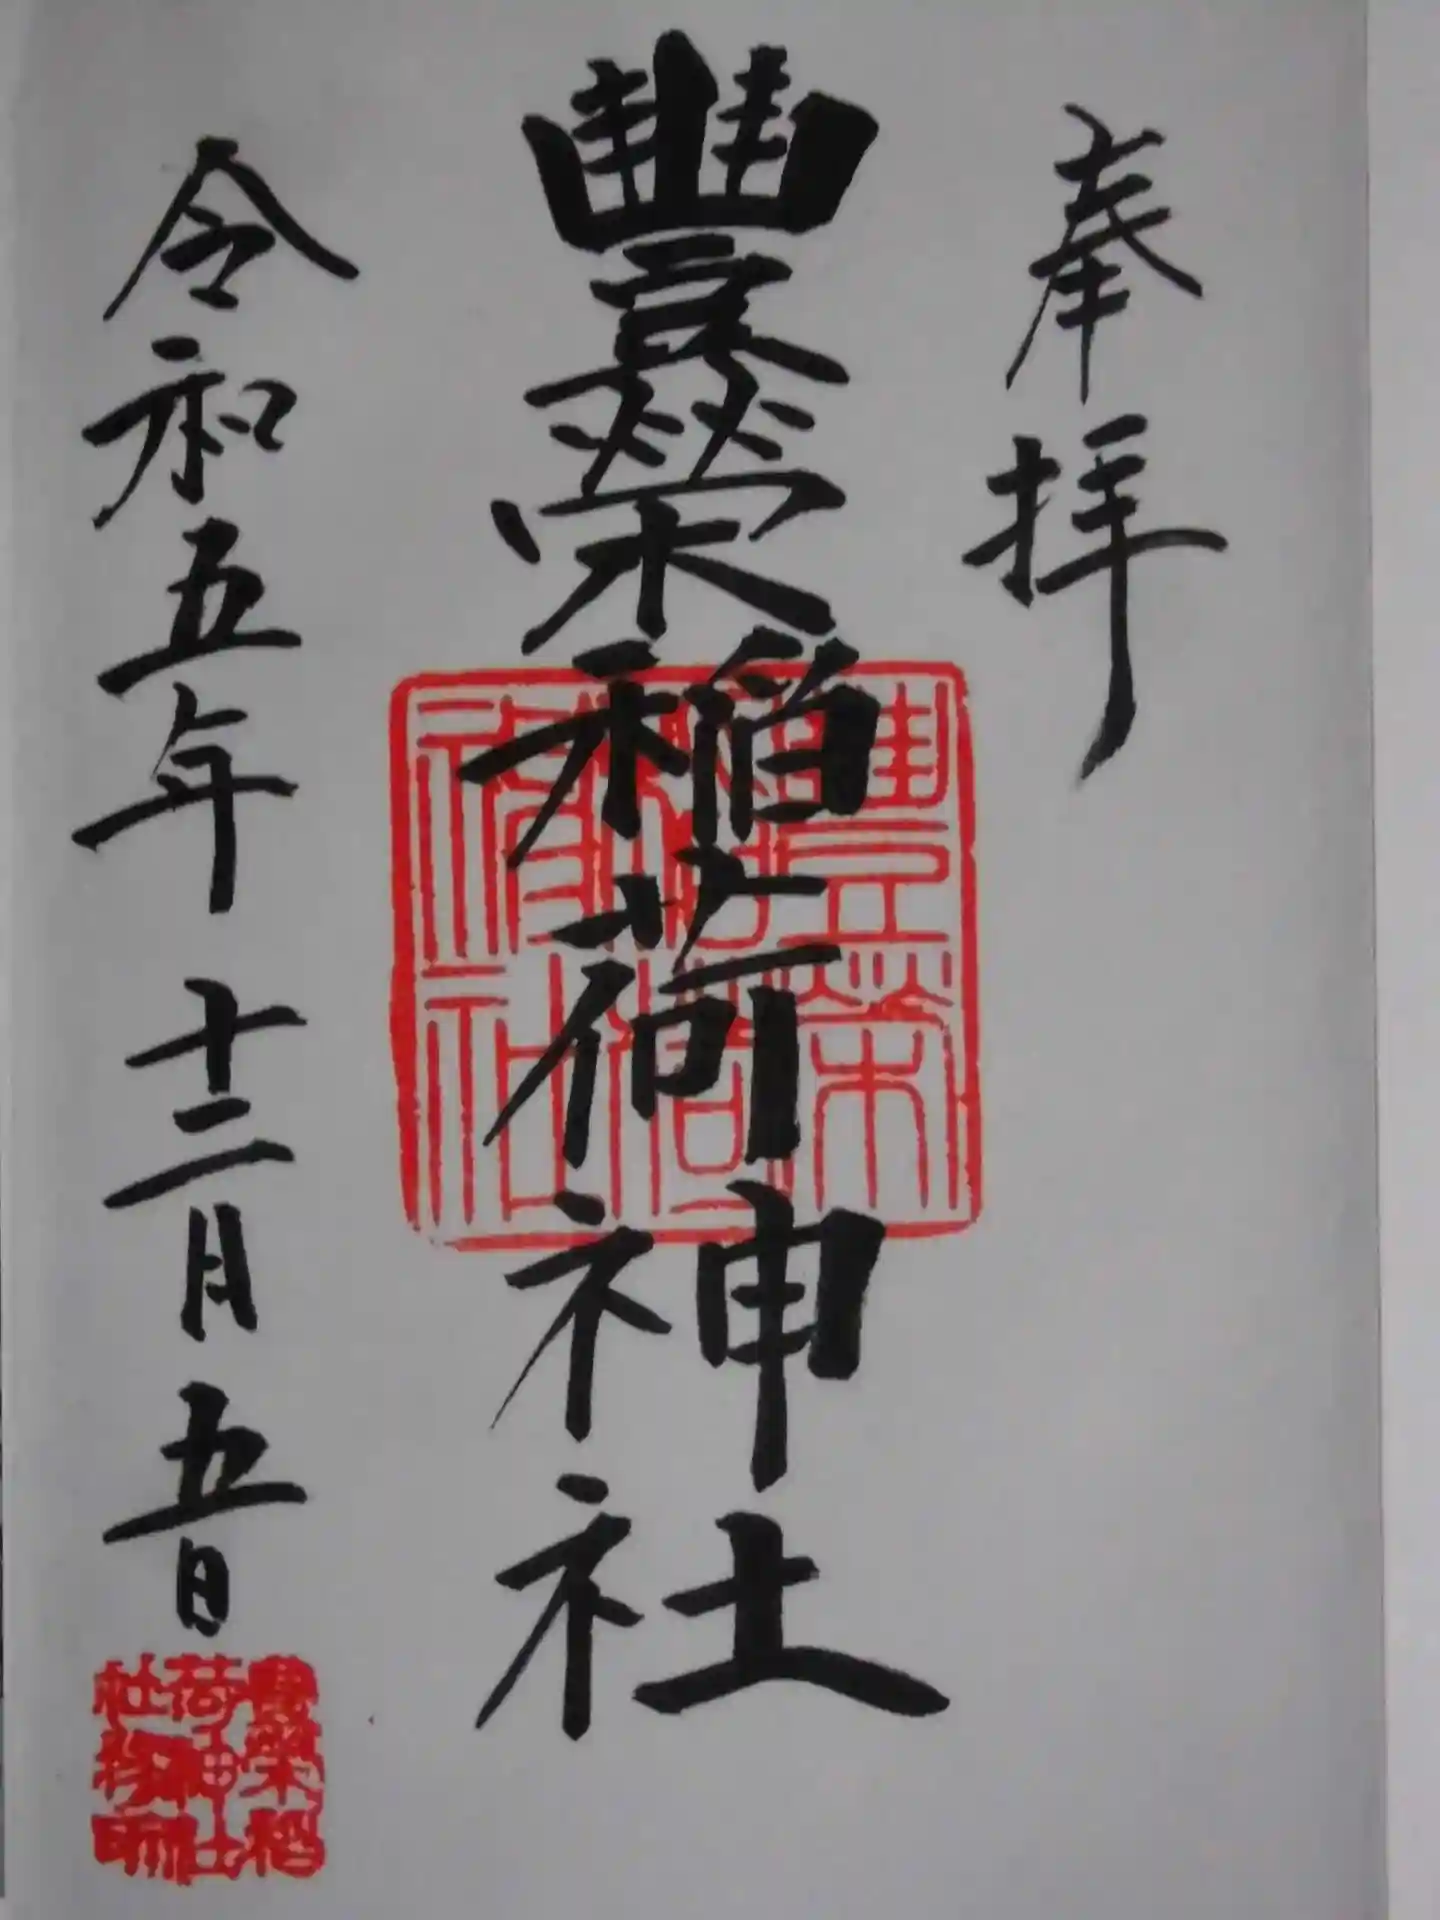 奉拝
豐榮稲荷神社
令和五年十二月五日
豊榮
稲荷
神社
豊榮稲
荷神社
社務所印